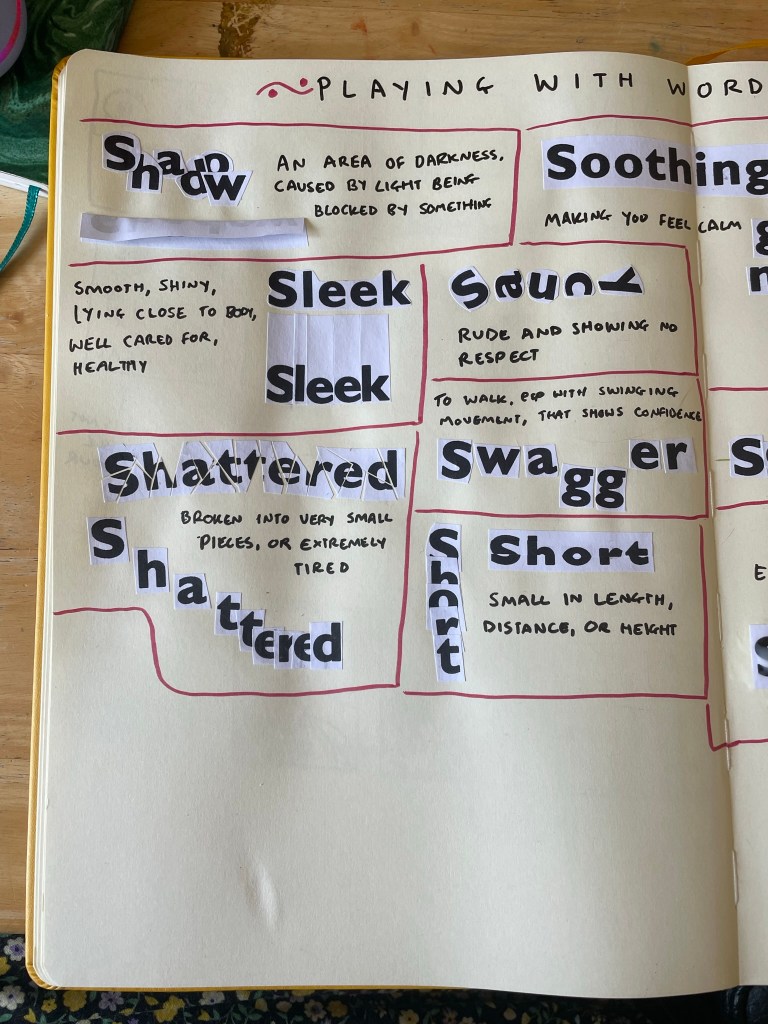 PLAYING WITH WORD
Shadow
AN AREA OF DARKNESS,
CAUSED BY LIGHT BEING
BLOCKED BY SOMETHING
Soothing
MAKING YOU FEEL CALM
SMOOTH, SHINY,
LYING CLOSE TO BODY,
WELL CARED FOR,
HEALTHY
Sleek
Sleek
Saucy
RUDE AND SHOWING NO
RESPECT
TO WALK, WITH SWINGING
MOVEMENT, THAT SHOWS CONFIDENCE
Swagger
Shattered
BROKEN INTO VERY SMALL
PIECES, OR EXTREMELY
TIRED
Shattered
Short
Short
SMALL IN LENGTH,
DISTANCE, OR HEIGHT